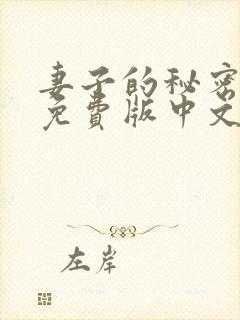 妻子的秘密
免費版中文
左岸